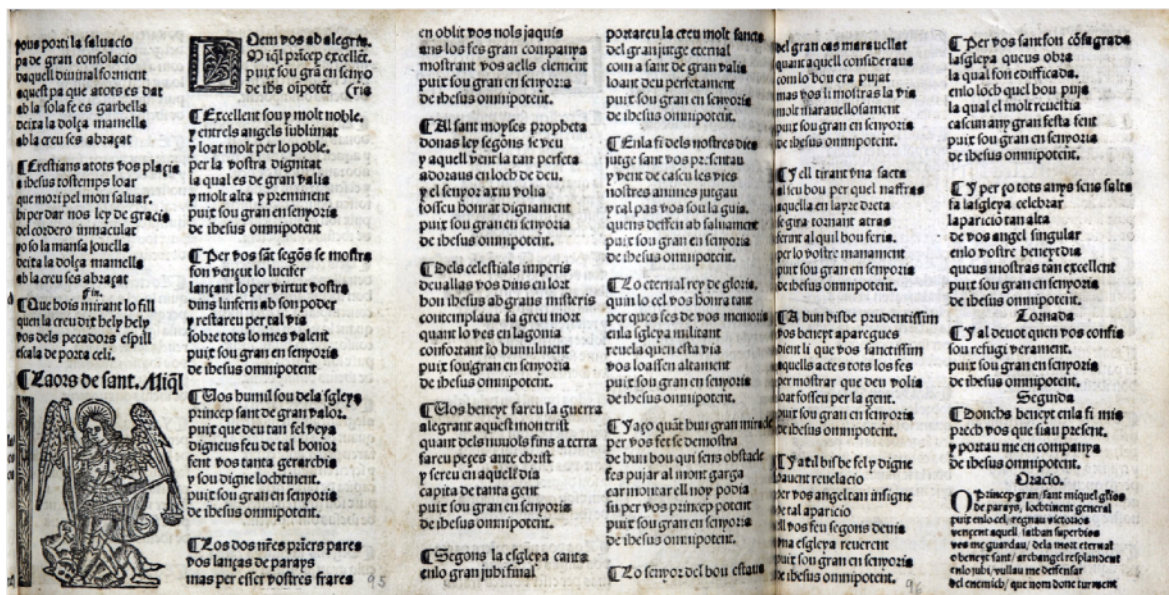 pous porti la saluacio
pa de gran consolacio
daquell diuinal forment
aquest pa que atots es dat
ab la sola fe es garbella
deixa la dolça mamella
ab la creu ses abraçat
¶Crestians atots vos plaçia
a ihesus tostemps loar
que mori pel mon saluar.
hi per dar nos ley de gracia
del cordero inmaculat
yo so la mansa jouella
deixa la dolça mamella
ab la creu ses abraçat
fin.
¶Que hois mirant lo fill
quen la creu dix hely hely
vos dels pecadors espill
escala de porta celi.
¶Laors de sant. Miq̃l
Oem vos ab alegria.
Miq̃l prĩcep excellẽt.
puix sou grã en senyo
de ihs oĩpotẽt (ria
¶Excellent sou y molt noble.
y entrels angels sublimat
y loat molt per lo poble.
per la vostra dignitat
la qual es de gran valia
y molt alta y preminent
puix sou gran en senyoria
de ihesus omnipotent
¶Per vos sãt segõs se mostra
fon vençut lo lucifer
lançant lo per virtut vostra
dins linfern ab son poder
y restareu per tal via
sobre tots lo mes valent
puix sou gran en senyoria
de ihesus omnipotent
¶Uos humil sou dela sgleya
princep sant de gran valor.
puix que deu tan fel veya
digneus feu de tal honor
fent vos tanta gerarchia
y sou digne lochtinent.
puix sou gran en senyoria
de ihesus omnipotent.
¶Los dos nr̃es prĩers pares
vos lanças de parays
mas per esser vostres frares
95
en oblit vos nols jaquis
ans los fes gran companya
mostrant vos aells clement
puix sou gran en senyoria
de ihesus omnipotent.
¶Al sant moyses propheta
donas ley segõns se veu
y aquell vent la tan perfeta
adoraus en loch de deu.
y el senyor axiu volia
fosseu honrat dignament
puix sou gran en senyoria
de ihesus omnipotent.
¶Dels celestials imperis
deuallas vos dins en lort
hon ihesus ab grans misteris
contemplaua sa greu mort
quant lo ves en lagonia
confortant lo humilment
puix sou gran en senyoria
de ihesus omnipotent.
¶Uos beneyt fareu la guerra
alegrant aquest mon trist
quant dels nuuols fins a terra
fareu peçes ante christ
y sereu en aquell dia
capita de tanta gent
puix sou gran en senyoria
de ihesus omnipotent.
¶Segons la esgleya canta
enlo gran juhi final
portareu la creu molt sancta
del gran jutge eternal
com a sant de gran valia
loant deu perfetament
puix sou gran en senyoria
de ihesus omnipotent.
¶Enla fi dels nostres dies
jutge sant vos presentau
y vent de cascu les vies
nostres animes jutgau
y tal pas vos sou la guia.
quens deffen ab saluament
puix sou gran en senyoria
de ihesus omnipotent.
¶Lo eternal rey de gloria.
quin lo cel vos honra tant
per ques fes de vos memoria
enla sgleya militant
reuela quien esta via
vos loassen altament
puix sou gran en senyoria
de ihesus omnipotent.
¶Yaço quãt hun gran miracle
per vos fet se demostra
de hun bou qui sens obstacle
fes pujar al mont garga
car montar ell noy podia
su per vos princep potent
puix sou gran en senyoria
de ihesus omnipotent.
¶Lo senyor del bou estaua
del gran cas marauellat
y quant aquell consideraua
com lo bou era pujat
mas vos li mostras la via
molt marauellosament
puix sou gran en senyoria
de ihesus omnipotent.
¶Y ell tirant vna saeta
al seu bou per quel naffras
aquella en layre dreta
segura tornant atras
ferint al qui l bou feria.
per lo vostre manament
puix sou gran en senyoria
de ihesus omnipotent.
¶A hun bisbe prudentissim
vos beneyt aparegues
dient li que vos sanctissim
aquells actes tots los fes
per mostrar que deu volia
loat fosseu per la gent.
puix sou gran en senyoria
de ihesus omnipotent.
¶Y atil bisbe fel y digne
hauent reuelacio
per vos angel tan insigne
de tal aparicio
ell vos feu segons deuia
vna esgleya reuerent
puix sou gran en senyoria
de ihesus omnipotent.
96
¶Per vos sant fon cõsagrada
lasgleya queus obra
la qual fon edificada.
enlo loch quel bou puja
la qual el molt reueixia
cascun any gran festa fent
puix sou gran en senyoria
de ihesus omnipotent.
¶Y per ço tots anys sens falta
fa lasgleya celebrar
laparicio tan alta
de vos angel singular
enlo vostre beneyt dia
queus mostras tan excellent
puix sou gran en senyoria
de ihesus omnipotent.
Tornada
¶Y al deuot quen vos confia
sou refugi verament.
puix sou gran en senyoria
de ihesus omnipotent.
Segunda
¶Donchs beneyt enla fi mia
prech vos que siau present.
y portau me en companya
de ihesus omnipotent.
Oracio.
O Princep gran/sant miquel gl̃ios
de parays, lochtinent general
puix enlo cel, regnau victorios
vençent aquell, sathan superbios
vos me guardau/ dela mort eternal
o beneyt sant/ archangel resplandent
enlo juhi/ vullau me deffensar
del enemich/ que nom done turment